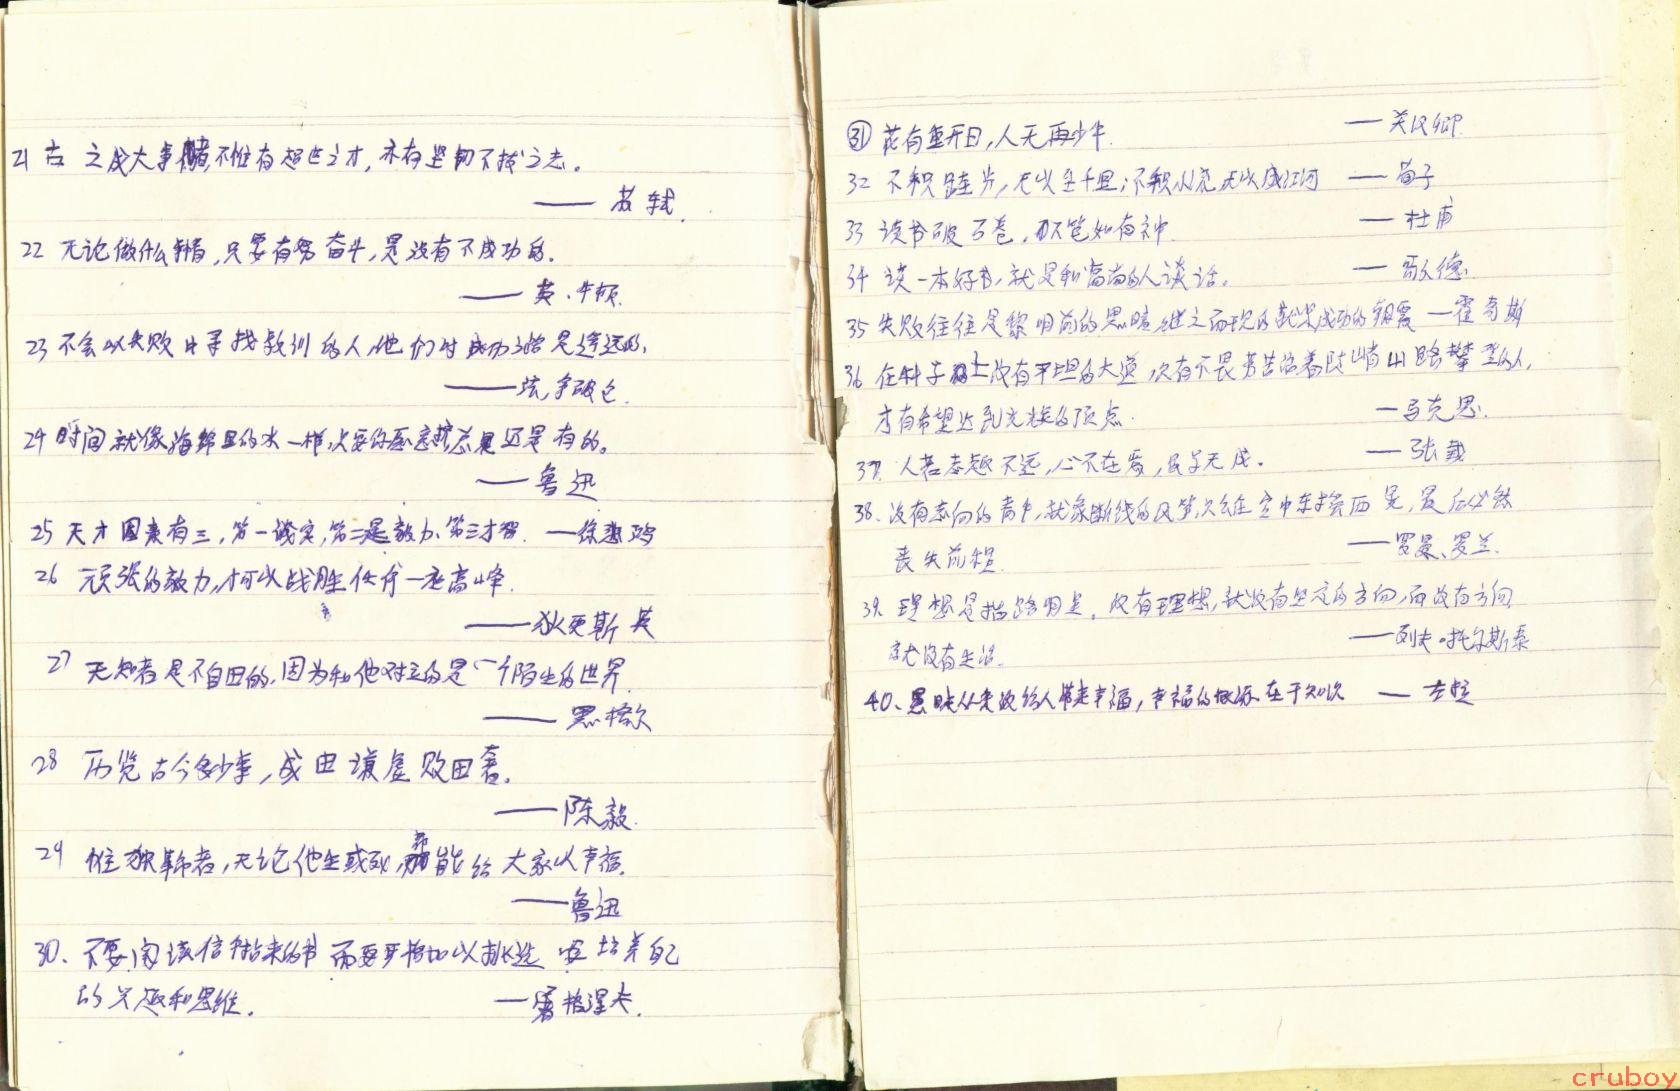 21 古之成大事者,不惟有超世之才,亦有坚韧不拔之志。
—— 苏轼.
22 无论做什么事情,只要有努奋斗,是没有不成功的.
—— 英.牛顿.
23 不会从失败中寻找教训的人,他们的成功之路是遥远的.
——拿破仑.
24 时间就像海绵里的水一样,次要你愿意挤总是还是有的。
—— 鲁迅
25 天才因素有三,第一诚实,第二是毅力、第三才智. —徐悲鸿
26 顽强的毅力,可以战胜任何一座高峰.
——狄更斯 英
27 无知者是不自由的,因为和他对立的是一个陌生的世界.
—— 黑格尔
28 历览古今多少事,成由谦虚败由奢。
——陈毅.
29 惟独革命者,无论他生或死,都能给大家以幸福.
——鲁迅
30、不要阅读信手拈来的书 而要严格加以挑选 要培养自己
的兴趣和思维.
—
㉛ 花有重开日,人无再少年. —— 关汉卿.
32 不积跬步,无以至千里;不积小流无以成江河 —— 荀子
33 读书破万卷,下笔如有神. — 杜甫
34 读一本好书,就是和高尚的人谈话。 — 歌德.
35 失败往往是黎明前的黑暗,继之而现的就是成功的朝霞 —霍奇斯
36 在科学上没有平坦的大道,次有不畏劳苦沿着陡峭山路攀登的人,
才有希望达到光辉的顶点. —马克思.
37. 人若志趣不远,心不在焉,虽学无成. — 张载
38、没有志向的青年,就象断线的风筝,次会在空中东摇西晃,最后必然
丧失前程. ——罗曼、罗兰.
39. 理想是指路明星。没有理想,就没有坚定的方向,而没有方向
就没有生活. ——列夫·托尔斯泰
40、愚昧从来没给人带来幸福,幸福的根源在于知识 — 左拉
cruboy